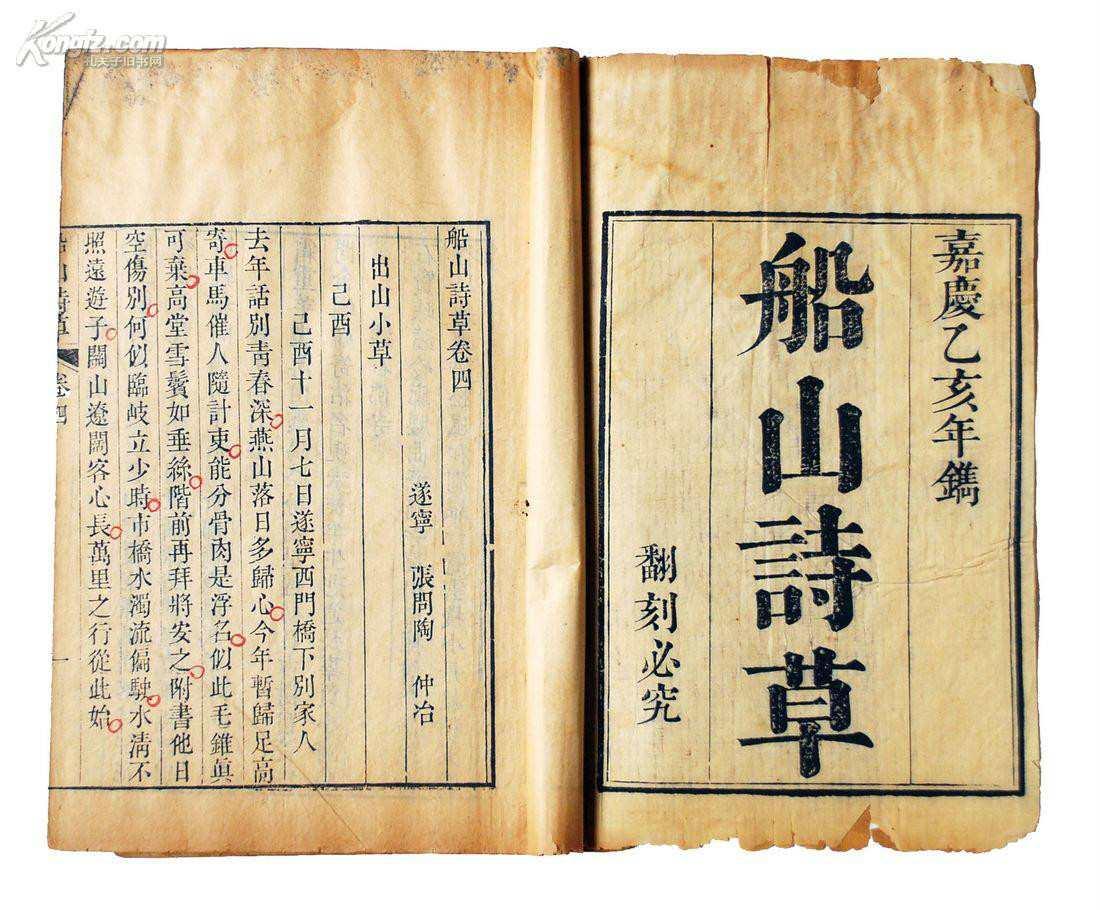 Kongfz.com
孔夫子旧书网
嘉慶乙亥年鐫
船山詩草
翻刻必究
船山詩草卷四
遂寧 張問陶 仲冶
出山小草
己酉
己酉十一月七日遂寧西門橋下別家人
去年話別青春深燕山落日多歸心今年暫歸足高
寄車馬催人隨計吏能分骨肉是浮名似此毛錐眞
可棄高堂雪鬢如垂絲階前再拜將安之附書他日
空傷別何似臨岐立少時市橋水濁流偏駛水淸不
照遠遊子關山遼闊客心長萬里之行從此始
船山詩草 卷四 一